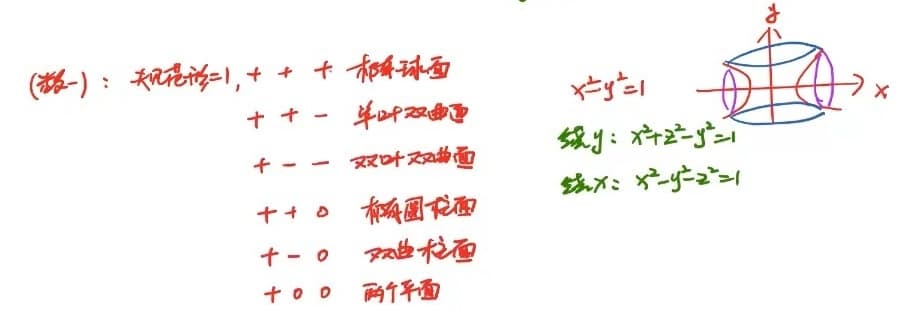 (数一): 二次规范形=1, + + + 椭球面
+ + - 单叶双曲面
+ - - 双叶双曲面
+ + 0 椭圆柱面
+ - 0 双曲柱面
+ 0 0 两个平面
x²-y²=1
绕y: x²+z²-y²=1
绕x: x²-y²-z²=1
y
x